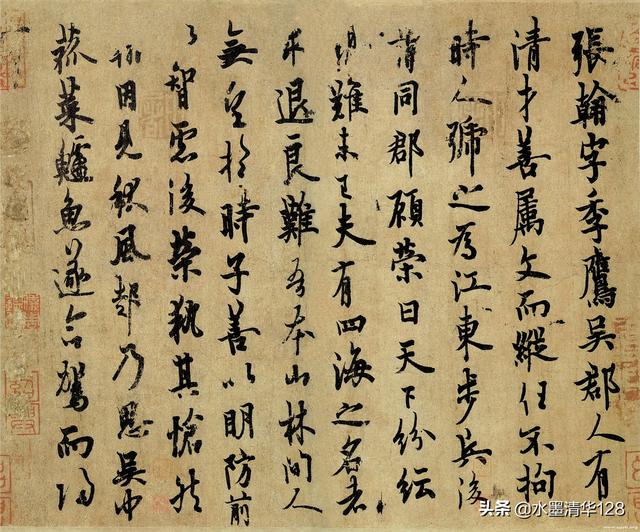 張翰字季鷹吳郡人有
清才善属文而縱任不拘
時人號之為江東步兵後
謂同郡顧榮曰天下紛紜
禍難未已夫有四海之名者
求退良難吾本山林間人
無望於時子善以明防前
以智慮後榮執其愴然
翰因見秋風起乃思吳中
菰菜鱸魚遂命駕而歸
头条 @水墨清华128